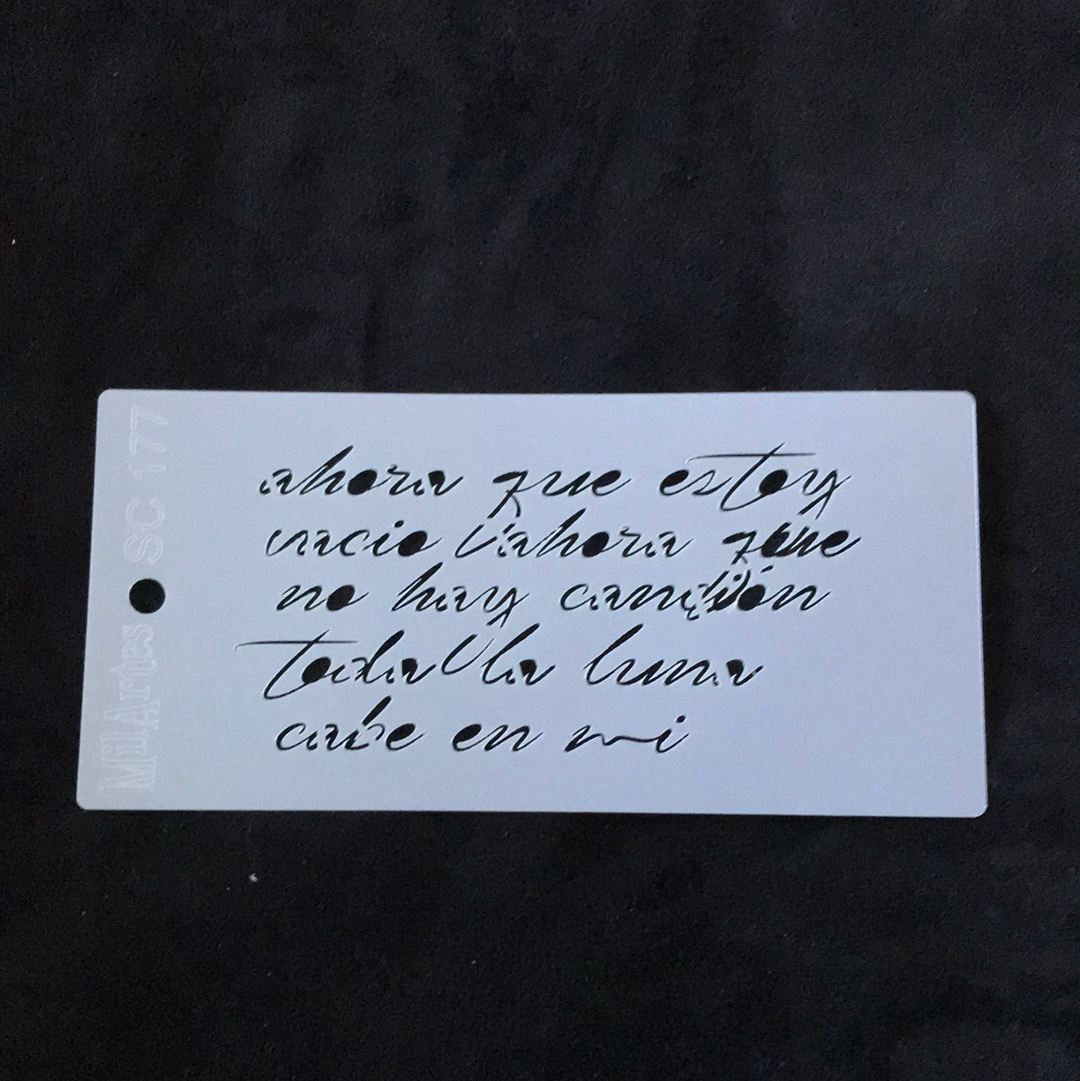 MilArtes SC 177
ahora que estoy
vacio ahora que
no hay canción
toda la luna
cabe en mi